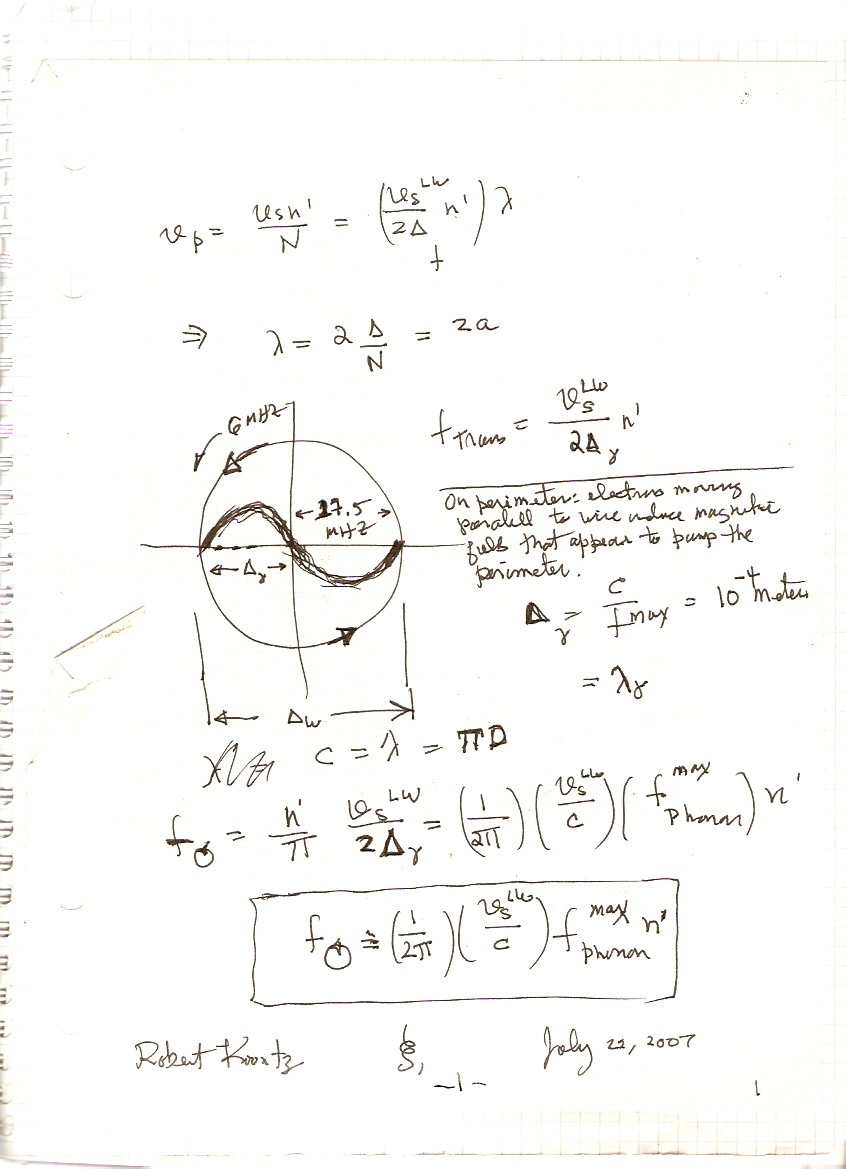 v_p = v_s n' / N = (v_s^LW / 2Δ n') λ
f
⇒ λ = 2 Δ/N = 2a
6 MHZ
f_Trans = v_s^LW / 2Δ_γ n'
17.5
MHZ
Δ_γ
On perimeter: electrons moving
parallell to wire induce magnetic
that appear to pump the
perimeter.
Δ_γ = c / f^max = 10^-4 meters
= λ_γ
Δ_w
C = λ = πD
f_O = n'/π v_s^LW / 2Δ_γ = (1/2π) (v_s^LW / c) (f_Phonon^max) n'
f_O ≅ (1/2π) (v_s^LW / c) f_phonon^max n'
Robert Koontz July 22, 2007
-1-
1